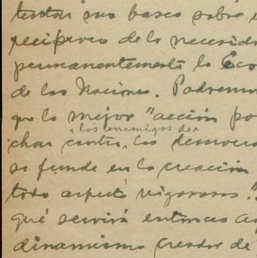 sus bases sobre
recíproco de la necesida
permanentemente la Eco
de las Naciones. Podremos
que la mejor "acción po
los enemigos de
char contra las democra
se funde en la creación
todo aspecto vigorosos."
qué servirá entonces
dinamismo creador de